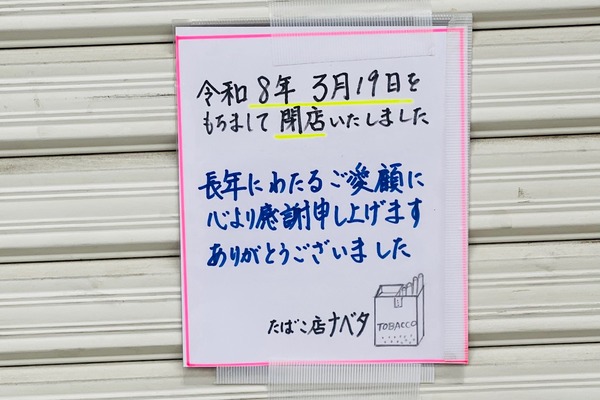 令和8年 3月19日を
もちまして閉店いたしました
長年にわたるご愛顧に
心より感謝申し上げます
ありがとうございました
たばこ店ナベタ
TOBACCO